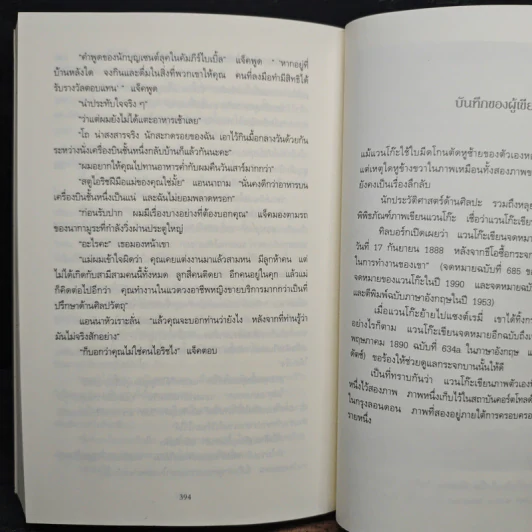 "คำพูดของนักบุญเซนต์ลุคในคัมภีร์ไบเบิ้ล" แจ็คพูด "'หากอยู่ที่
บ้านหลังใด จงกินและดื่มในสิ่งที่พวกเขาให้คุณ คนที่ลงมือทำมีสิทธิได้
รับรางวัลตอบแทน' " แจ็คพูด
"น่าประทับใจจริง ๆ"
"ว่าแต่ผมยังไม่ได้แตะอาหารเช้าเลย"
"โถ น่าสงสารจริง นักสะกดรอยของฉัน เอาไว้กินมื้อกลางวันด้วยกัน
ระหว่างนั่งเครื่องบินชั้นหนึ่งกลับบ้านก็แล้วกันนะคะ"
"ผมอยากให้คุณไปทานอาหารค่ำกับผมคืนวันเสาร์มากกว่า"
"สตูไอริชฝีมือแม่ของคุณใช่มั้ย" แอนนาถาม "นั่นคงดีกว่าอาหารบน
เครื่องบินชั้นหนึ่งเป็นแน่ และฉันไม่ยอมพลาดหรอก"
"ก่อนรับปาก ผมมีเรื่องบางอย่างที่ต้องบอกคุณ" แจ็คมองตามรถ
ของนากามูระที่กำลังวิ่งผ่านประตูใหญ่
"อะไรคะ" เธอมองหน้าเขา
"แม่ผมเข้าใจผิดว่า คุณเคยแต่งงานมาแล้วสามหน มีลูกห้าคน แต่
ไม่ได้เกิดกับสามีสามคนนี้ทั้งหมด ลูกสี่คนติดยา อีกคนอยู่ในคุก แล้วแม่
ก็คิดต่อไปอีกว่า คุณทำงานในแวดวงอาชีพหญิงขายบริการมากกว่าเป็นที่
ปรึกษาด้านศิลปวัตถุ"
แอนนาหัวเราะลั่น "แล้วคุณจะบอกท่านว่ายังไง หลังจากที่ท่านรู้ว่า
มันไม่จริงสักอย่าง"
"ก็บอกว่าคุณไม่ใช่คนไอริชไง" แจ็คตอบ
394
บันทึกของผู้เขีย
แม้แวนโก๊ะใช้ใบมีดโกนตัดหูซ้ายของตัวเองหล
แต่เหตุใดหูข้างขวาในภาพเหมือนทั้งสองภาพข
ยังคงเป็นเรื่องลึกลับ
นักประวัติศาสตร์ด้านศิลปะ รวมถึงหลุย
พิพิธภัณฑ์ภาพเขียนแวนโก๊ะ เชื่อว่าแวนโก๊ะเขีย
ทิลบอร์กเปิดเผยว่า แวนโก๊ะเขียนจดหมาย
วันที่ 17 กันยายน 1888 หลังจากธีโอซื้อกระจก
ในการทำงานของเขา" (จดหมายฉบับที่ 685 ขอ
จดหมายของแวนโก๊ะในปี 1990 และจดหมายฉบับ
และตีพิมพ์ฉบับภาษาอังกฤษในปี 1953)
เมื่อแวนโก๊ะย้ายไปแซงต์เรมี่ เขาได้ทิ้งกระ
อย่างไรก็ตาม แวนโก๊ะเขียนจดหมายอีกฉบับถึงเ
พฤษภาคม 1890 ฉบับที่ 634a ในภาษาอังกฤษ แล
ดัชช์) ขอร้องให้ช่วยดูแลกระจกบานนั้นให้ดี
เป็นที่ทราบกันว่า แวนโก๊ะเขียนภาพตัวเองที่
หนึ่งไว้สองภาพ ภาพหนึ่งเก็บไว้ในสถาบันคอร์ตโทลด์
ในกรุงลอนดอน ภาพที่สองอยู่ภายใต้การครอบครอ
รายหนึ่ง